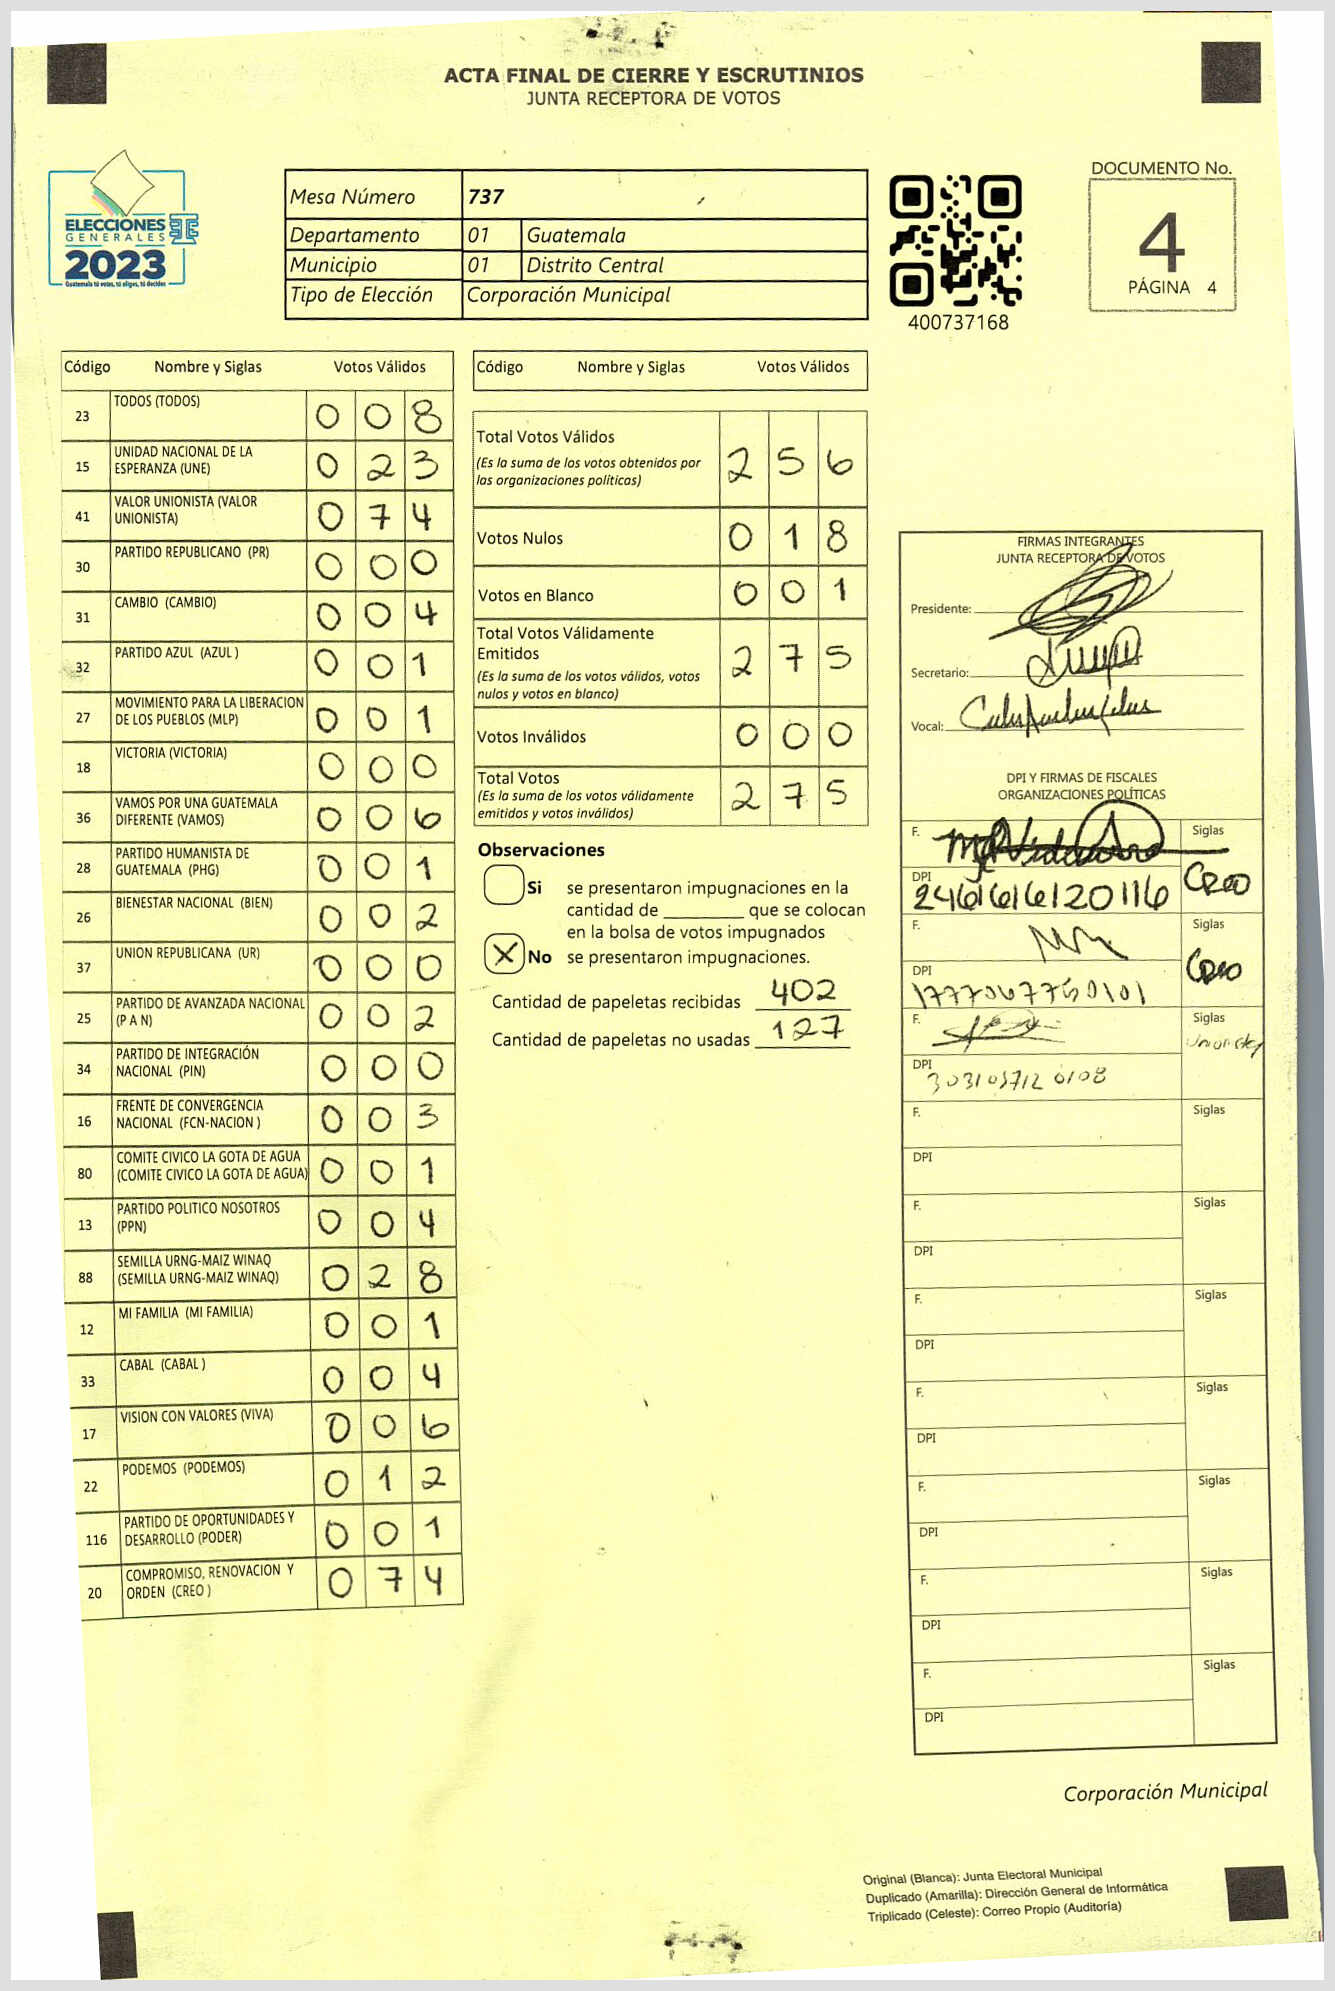 ACTA FINAL DE CIERRE Y ESCRUTINIOS
JUNTA RECEPTORA DE VOTOS
ELECCIONES
GENERALES
2023
Guatemala tú votas, tú eliges, tú decides
Mesa Número 737
Departamento 01 Guatemala
Municipio 01 Distrito Central
Tipo de Elección Corporación Municipal
400737168
DOCUMENTO No.
4
PÁGINA 4
Código Nombre y Siglas Votos Válidos
23 TODOS (TODOS) 0 0 8
15 UNIDAD NACIONAL DE LA ESPERANZA (UNE) 0 2 3
41 VALOR UNIONISTA (VALOR UNIONISTA) 0 7 4
30 PARTIDO REPUBLICANO (PR) 0 0 0
31 CAMBIO (CAMBIO) 0 0 4
32 PARTIDO AZUL (AZUL ) 0 0 1
27 MOVIMIENTO PARA LA LIBERACION DE LOS PUEBLOS (MLP) 0 0 1
18 VICTORIA (VICTORIA) 0 0 0
36 VAMOS POR UNA GUATEMALA DIFERENTE (VAMOS) 0 0 6
28 PARTIDO HUMANISTA DE GUATEMALA (PHG) 0 0 1
26 BIENESTAR NACIONAL (BIEN) 0 0 2
37 UNION REPUBLICANA (UR) 0 0 0
25 PARTIDO DE AVANZADA NACIONAL (P A N) 0 0 2
34 PARTIDO DE INTEGRACIÓN NACIONAL (PIN) 0 0 0
16 FRENTE DE CONVERGENCIA NACIONAL (FCN-NACION ) 0 0 3
80 COMITE CIVICO LA GOTA DE AGUA (COMITE CIVICO LA GOTA DE AGUA) 0 0 1
13 PARTIDO POLITICO NOSOTROS (PPN) 0 0 4
88 SEMILLA URNG-MAIZ WINAQ (SEMILLA URNG-MAIZ WINAQ) 0 2 8
12 MI FAMILIA (MI FAMILIA) 0 0 1
33 CABAL (CABAL ) 0 0 4
17 VISION CON VALORES (VIVA) 0 0 6
22 PODEMOS (PODEMOS) 0 1 2
116 PARTIDO DE OPORTUNIDADES Y DESARROLLO (PODER) 0 0 1
20 COMPROMISO, RENOVACION Y ORDEN (CREO ) 0 7 4
Código Nombre y Siglas Votos Válidos
Total Votos Válidos 2 5 6
(Es la suma de los votos obtenidos por
las organizaciones políticas)
Votos Nulos 0 1 8
Votos en Blanco 0 0 1
Total Votos Válidamente
Emitidos 2 7 5
(Es la suma de los votos válidos, votos
nulos y votos en blanco)
Votos Inválidos 0 0 0
Total Votos 2 7 5
(Es la suma de los votos válidamente
emitidos y votos inválidos)
Observaciones
Si se presentaron impugnaciones en la
cantidad de ________ que se colocan
en la bolsa de votos impugnados
X No se presentaron impugnaciones.
Cantidad de papeletas recibidas 402
Cantidad de papeletas no usadas 127
FIRMAS INTEGRANTES
JUNTA RECEPTORA DE VOTOS
Presidente:
Secretario:
Vocal:
DPI Y FIRMAS DE FISCALES
ORGANIZACIONES POLÍTICAS
F. Siglas
DPI CREO
F. Siglas
DPI Creo
F. Siglas
DPI
F. Siglas
DPI
F. Siglas
DPI
F. Siglas
DPI
F. Siglas
DPI
F. Siglas
DPI
F. Siglas
DPI
F. Siglas
DPI
Corporación Municipal
Original (Blanca): Junta Electoral Municipal
Duplicado (Amarilla): Dirección General de Informática
Triplicado (Celeste): Correo Propio (Auditoría)